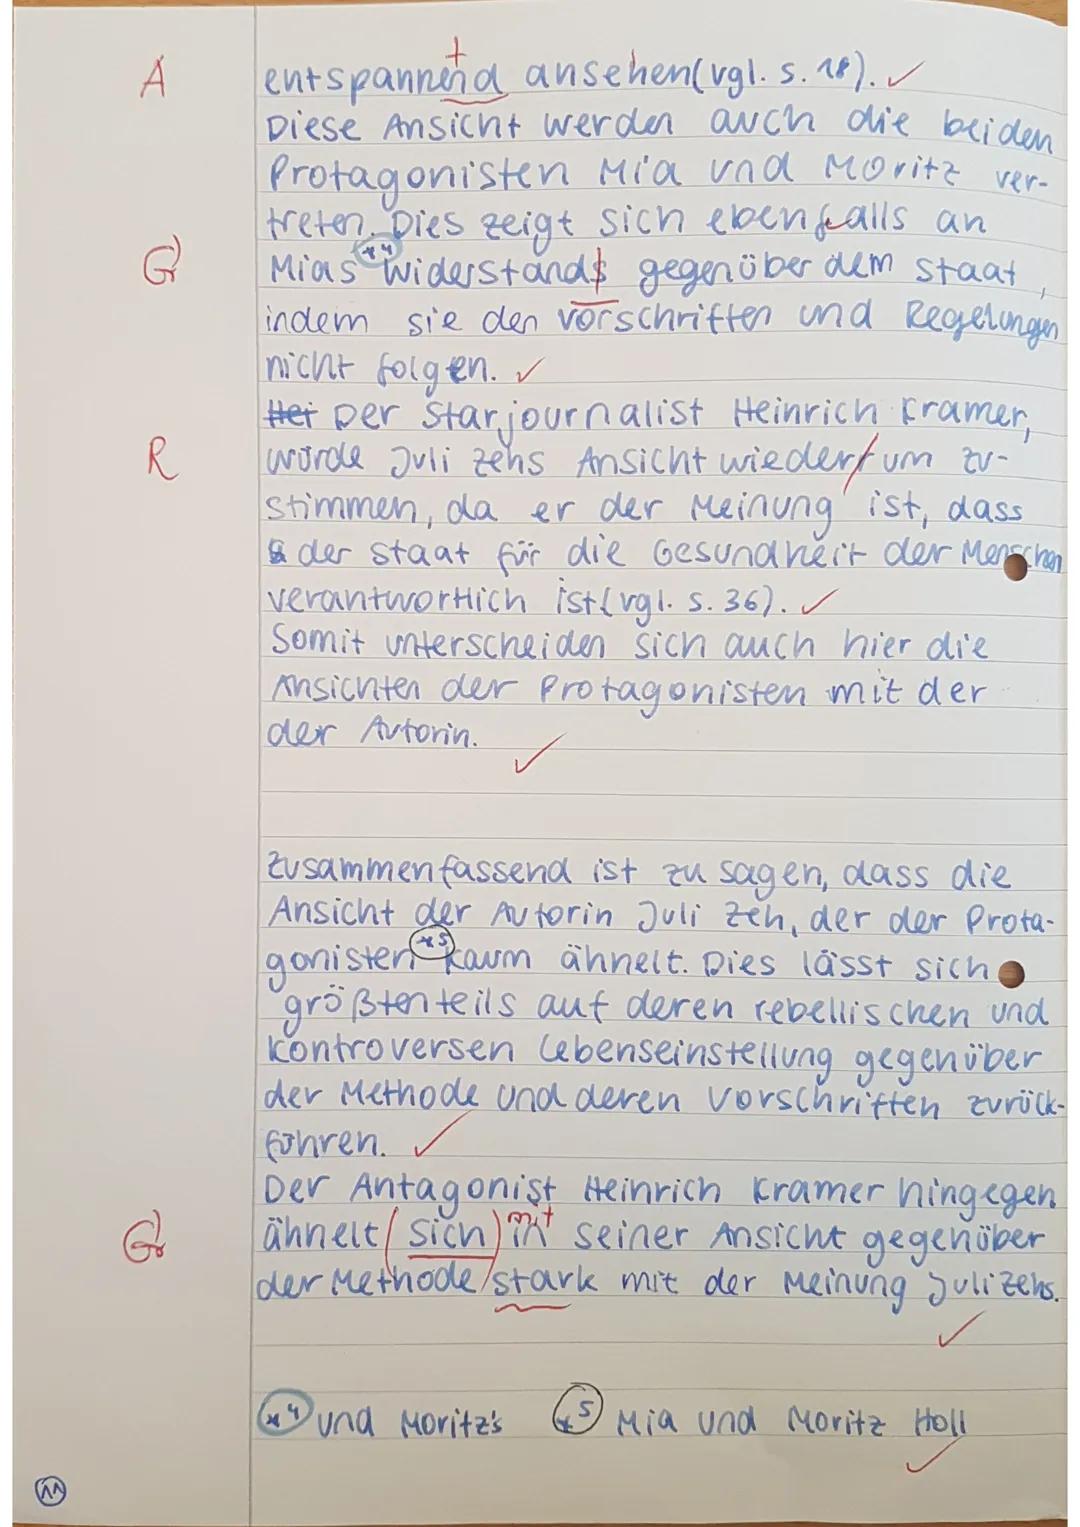 A
entspannend ansehen(vgl. s. 18). ✓
Diese Ansicht werden auch die beiden
Protagonisten Mia und Moritz ver-
treten. Dies zeigt sich ebenfalls an
Gr Mias *4 Widerstands gegenüber dem staat,
indem sie den Vorschriften und Regelungen
nicht folgen. ✓
Hei Der Starjournalist Heinrich Kramer,
R würde Juli Zehs Ansicht wiederrum zu-
stimmen, da er der Meinung ist, dass
der staat für die Gesundheit der Menschen
verantwortlich ist(vgl. s. 36). ✓
Somit unterscheiden sich auch hier die
Ansichten der Protagonisten mit der
der Autorin. ✓
Zusammenfassend ist zu sagen, dass die
Ansicht der Autorin Juli Zeh, der der Prota-
gonisten *5 kaum ähnelt. Dies lässt sich
größtenteils auf deren rebellischen und
kontroversen Lebenseinstellung gegenüber
der Methode und deren Vorschriften zurück-
führen. ✓
Der Antagonist Heinrich Kramer hingegen
Gr ähnelt (sich) mit in seiner Ansicht gegenüber
der Methode stark mit der Meinung Juli Zehs. ✓
*4 und Moritz's *5 Mia und Moritz Holl ✓
11